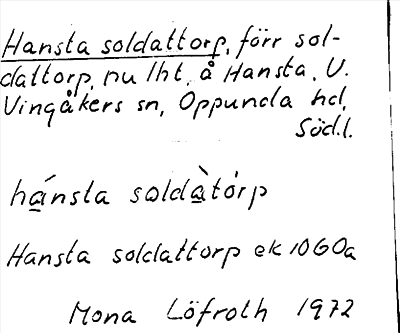 Hansta soldattorp, förr sol-
dattorp, nu lht, å Hansta, V.
Vingåkers sn, Oppunda hd,
Söd.l.
hánsta soldàtórp
Hansta soldattorp ek 10G0a
Mona Löfroth 1972